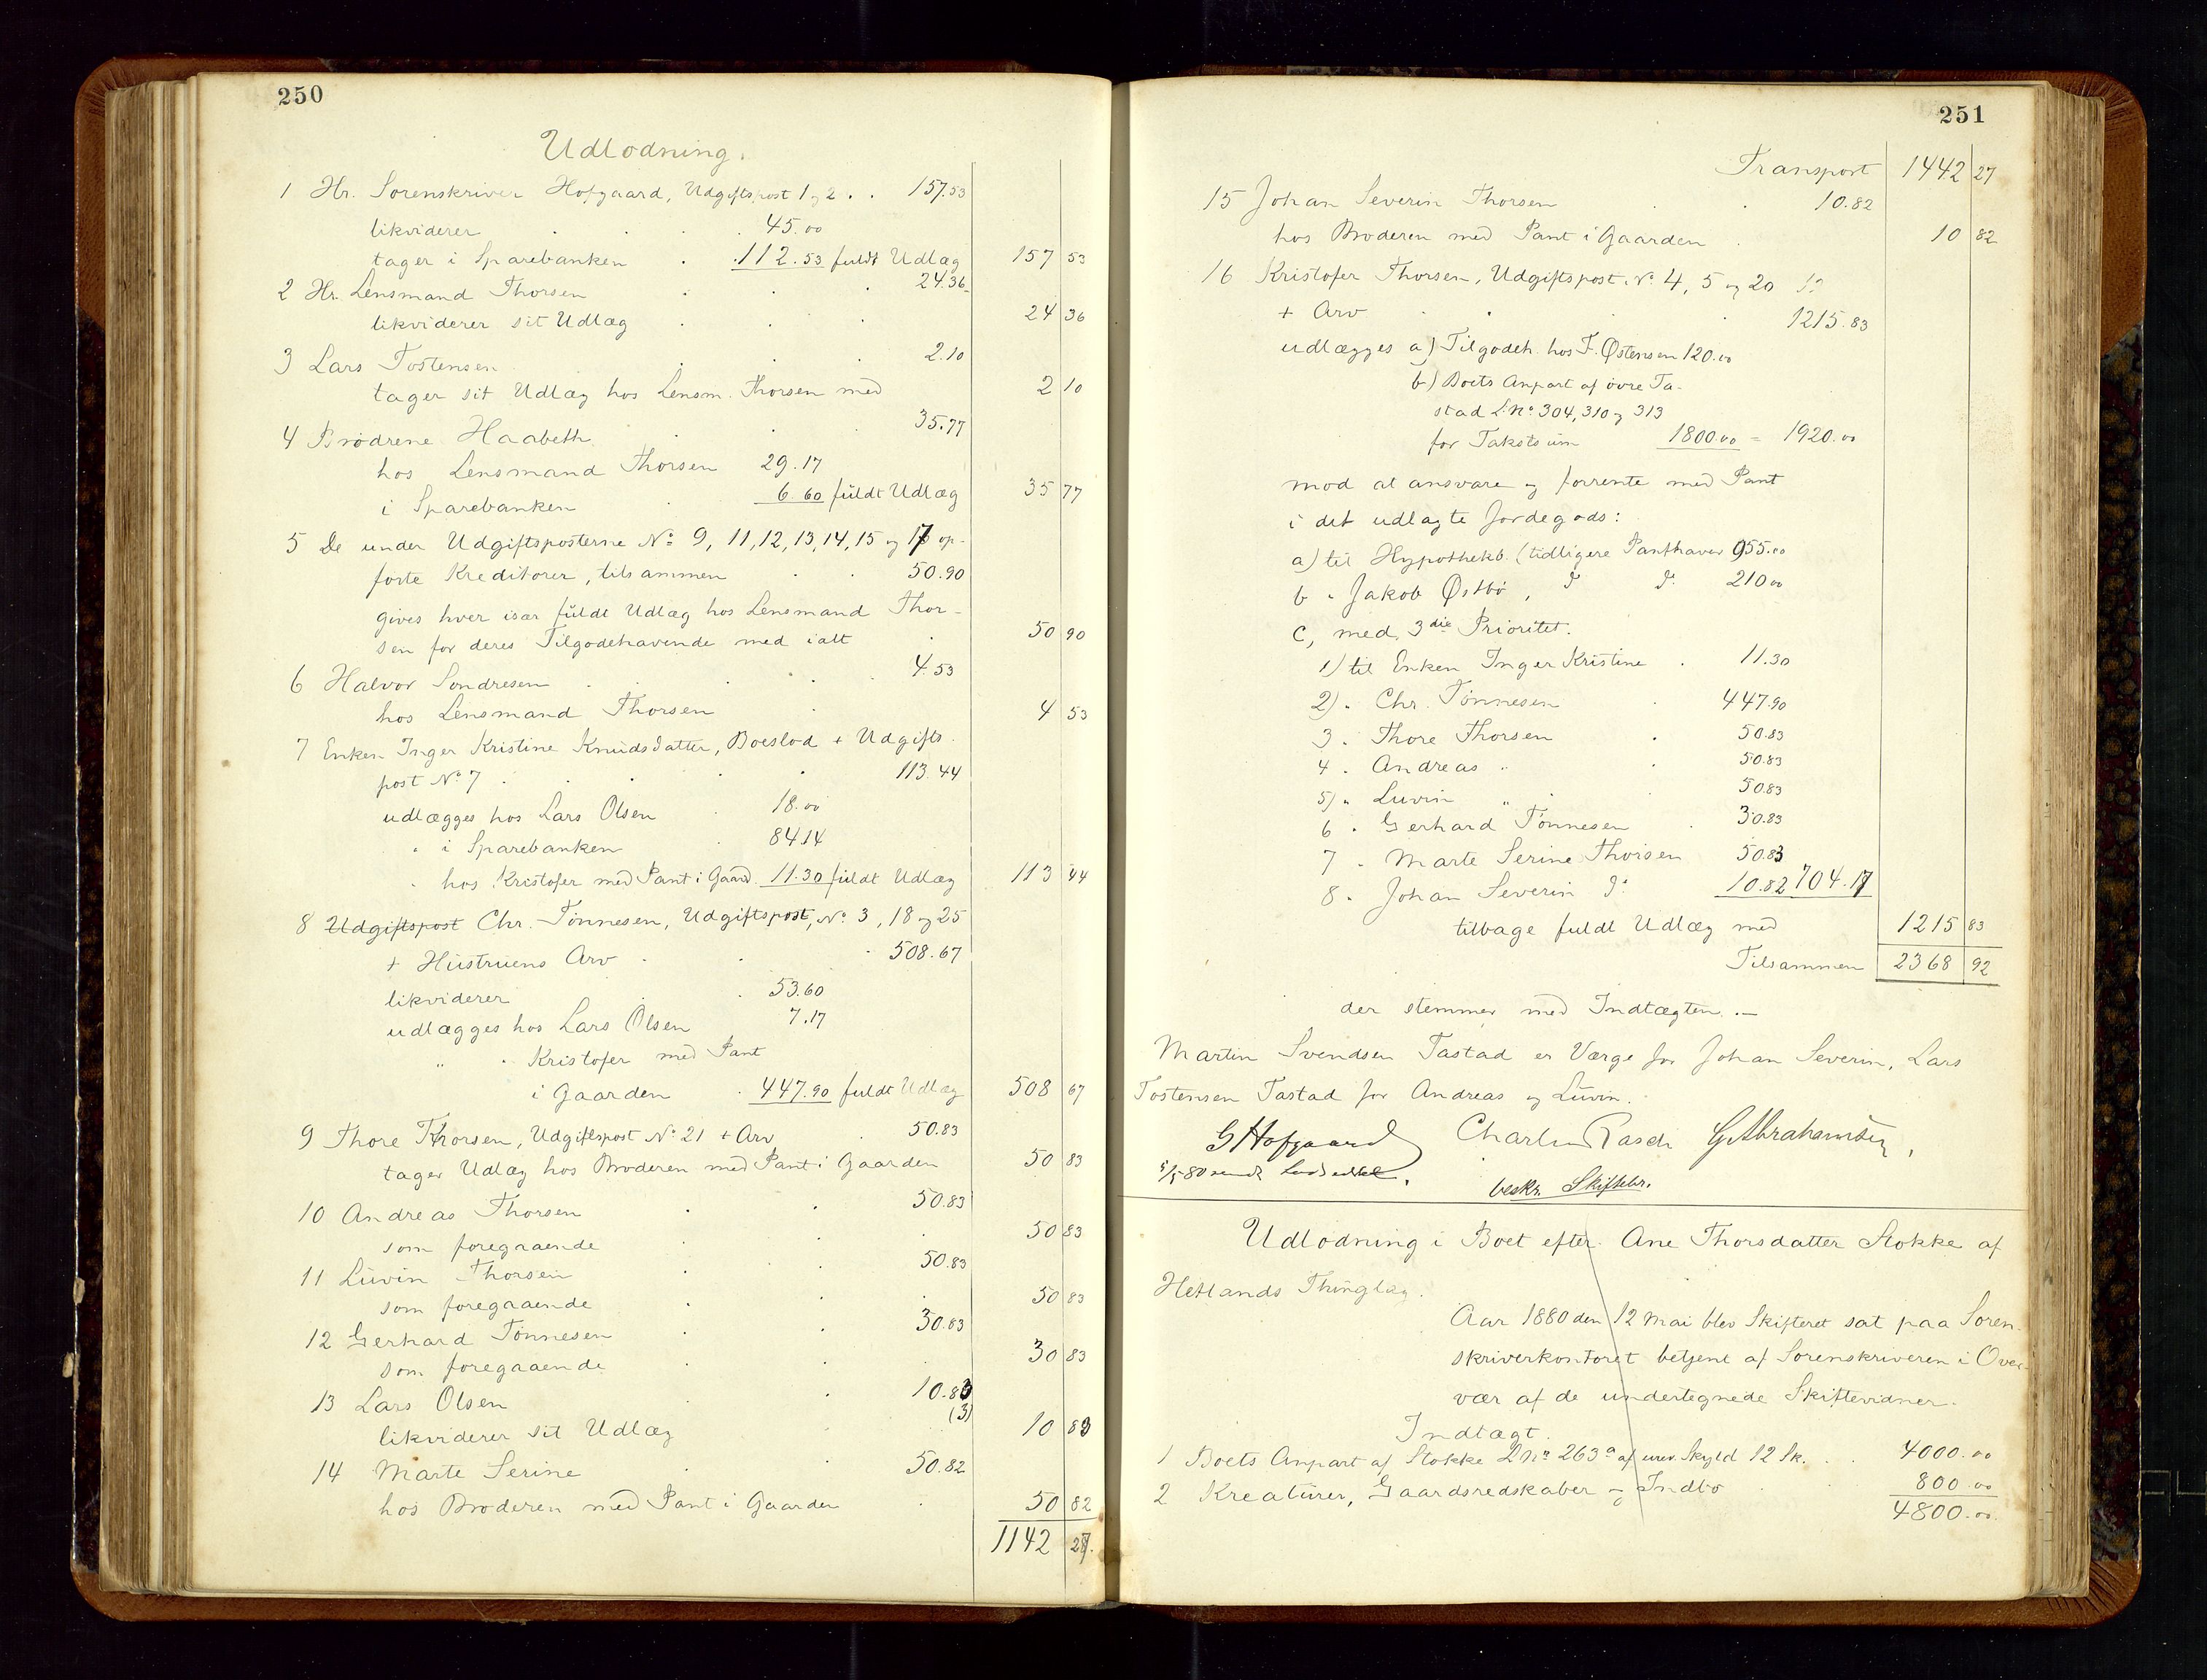 250
Udlodning.
1 Hr. Sorenskriver Hofgaard, Udgiftspost 1 og 2 . . 157.53
likviderer . . . . 45.00
tager i Sparebanken . 112.53 fuldt Udlæg 157 53
2 Hr. Lensmand Thorsen . . . 24.36
likviderer sit Udlæg . . . 24 36
3 Lars Tostensen . . . 2.10
tager sit Udlæg hos Lensm. Thorsen med 2 10
4 Brødrene Haabeth . . . 35.77
hos Lensmand Thorsen 29.17
i Sparebanken . 6.60 fuldt Udlæg 35 77
5 De under Udgiftsposterne No 9, 11, 12, 13, 14, 15 og 17 op-
førte Kreditorer, tilsammen . . 50.90
gives hver især fuldt Udlæg hos Lensmand Thor-
sen for deres Tilgodehavende med ialt . 50 90
6 Halvor Sondresen . . . 4.53
hos Lensmand Thorsen . 4 53
7 Enken Inger Kristine Knudsdatter, Boeslod + Udgifts-
post No 7 . . . . . 113.44
udlægges hos Lars Olsen . 18.00
" i Sparebanken . 84.14
" hos Kristofer med Pant i Gaard. 11.30 fuldt Udlæg 113 44
8 Udgiftspost Chr. Tønnesen, Udgiftspost, No. 3, 18 og 25
+ Hustruens Arv . . . 508.67
likviderer . . 53.60
udlægges hos Lars Olsen 7.17
" " Kristofer med Pant
i Gaarden . 447.90 fuldt Udlæg 508 67
9 Thore Thorsen, Udgiftspost No 21 + Arv . 50.83
tager Udlæg hos Broderen med Pant i Gaarden 50 83
10 Andreas Thorsen . . 50.83
som foregaaende . . 50 83
11 Luvin Thorsen . . 50.83
som foregaaende . . 50 83
12 Gerhard Tønnesen . . 30.83
som foregaaende . . 30 83
13 Lars Olsen . 10.83
(3)
likviderer sit Udlæg . 10 83
14 Marte Serine . . 50.82
hos Broderen med Pant i Gaarden . 50 82
1142 27.
251
Transport 1442 27
15 Johan Severin Thorsen . . 10.82
hos Broderen med Pant i Gaarden . 10 82
16 Kristofer Thorsen, Udgiftspost. No. 4, 5 og 20
+ Arv . . . 1215.83
udlægges a) Tilgodeh. hos T. Østensen 120.00
b) Boets Anpart af øvre Ta-
stad L.No. 304, 310 og 313
for Takstsum 1800.00 = 1920.00
mod at ansvare og forrente med Pant
i det udlagte Jordegods:
a) til Hypothekb. (tidligere Panthaver 955.00
b " Jakob Østbø, do do 210.00
c, med 3die Prioritet.
1) til Enken Inger Kristine . 11.30
2) " Chr. Tønnesen . 447.90
3 " Thore Thorsen . 50.83
4 " Andreas " . 50.83
5) " Luvin " . 50.83
6 " Gerhard Tønnesen . 30.83
7 " Marte Serine Thorsen 50.83
8 " Johan Severin do 10.82 704.17
tilbage fuldt Udlæg med 1215 83
Tilsammen 2368 92
der stemmer med Indtægten. —
Martin Svendsen Tastad er Værge for Johan Severin, Lars
Tostensen Tastad for Andreas og Luvin.
G Hofgaard Charles Rasch G Abrahamsen,
5/5 80 sendt Lodseddel.
beskr. Skiftebr.
Udlodning i Boet efter Ane Thorsdatter Stokke af
Hetlands Thinglag.
Aar 1880 den 12 Mai blev Skifteret sat paa Soren-
skriverkontoret betjent af Sorenskriveren i Over-
vær af de undertegnede Skiftevidner.
Indtægt.
1 Boets Anpart af Stokke L.No 263a af urev. Skyld 12 Sk. . . 4000.00
2 Kreaturer, Gaardsredskaber og Indbo . 800.00
4800.00.